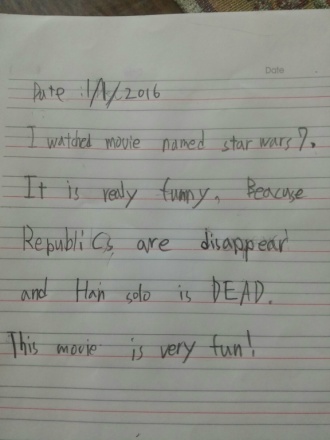 Date
Date : 1/1/2016
I watched movie named star wars 7.
It is realy funny. Beacuse
Republics are disappear
and Han solo is DEAD.
This movie is very fun!